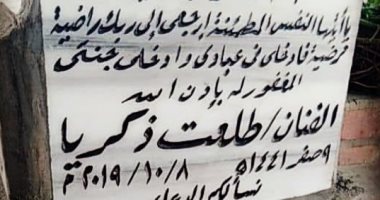 يا أيتها النفس المطمئنة إرجعى إلى ربك راضية
مرضية فادخلى فى عبادى وادخلى جنتى
المغفور له بإذن الله
الفنان / طلعت زكريا
٩ صفر ١٤٤١ ه ٢٠١٩/١٠/٨ م
نسألكم الدعاء